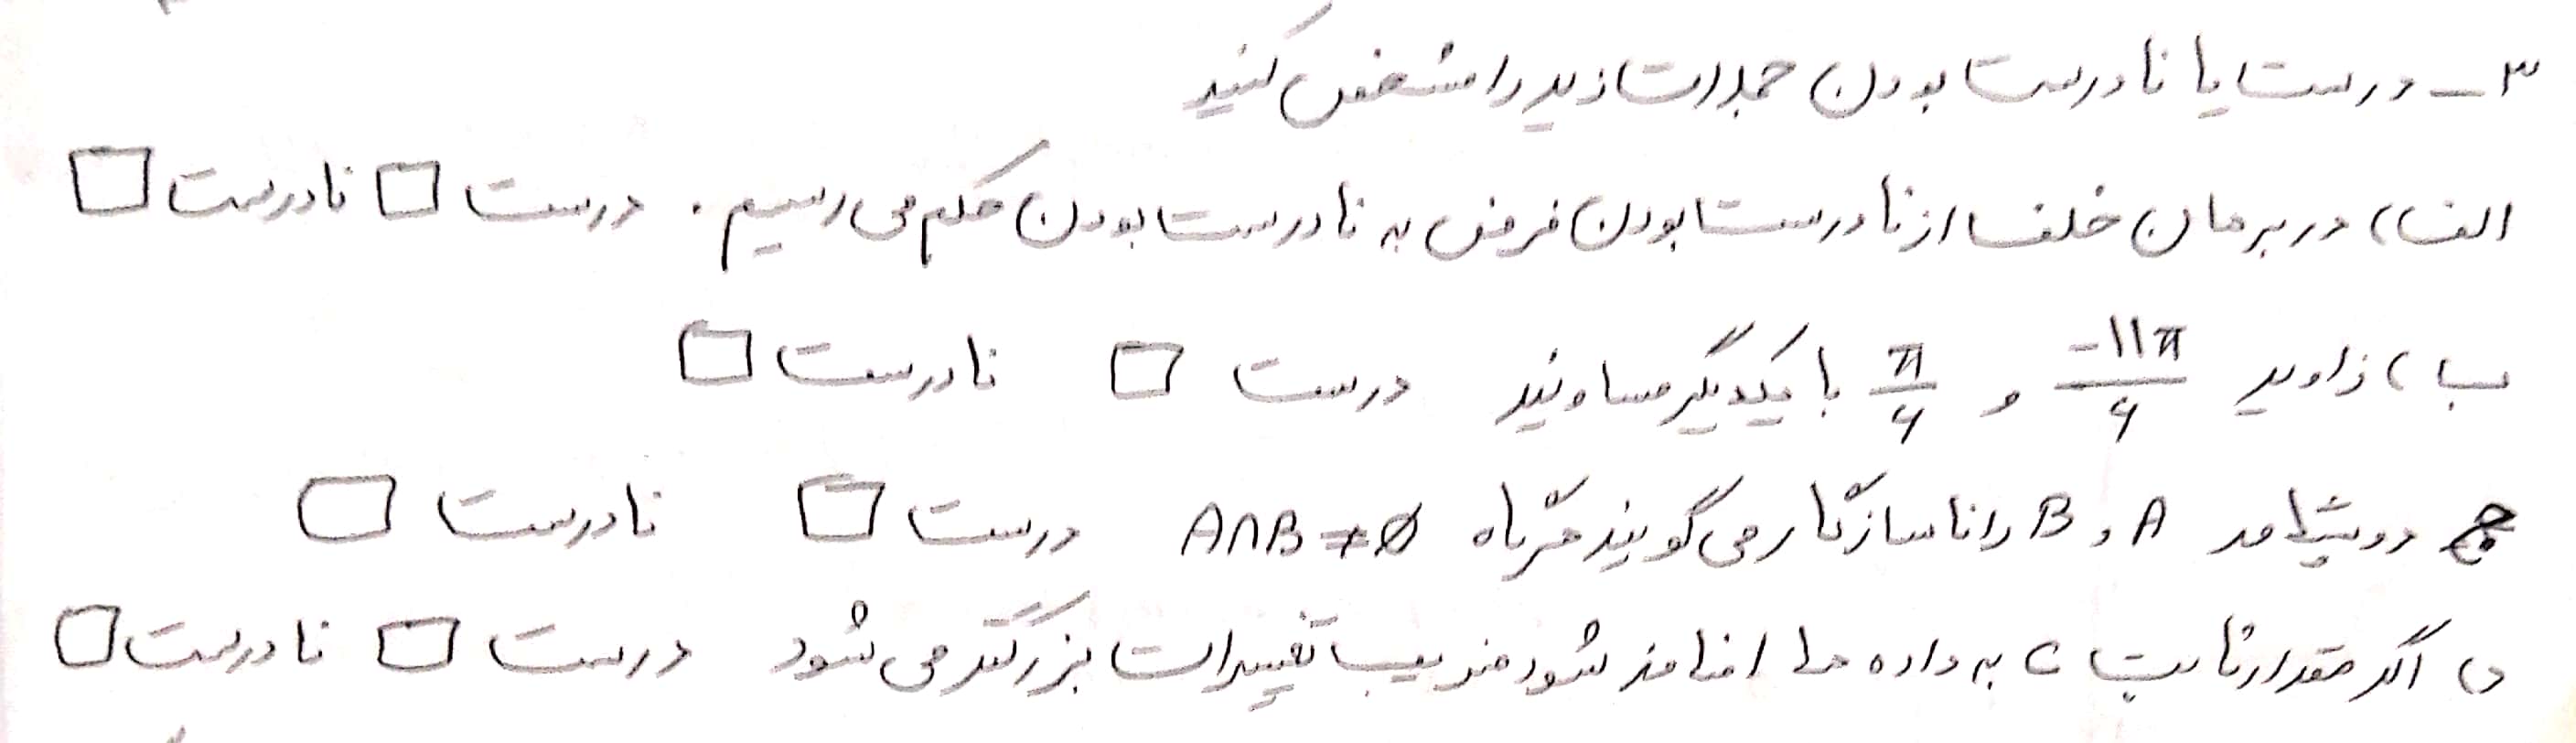 ۳ـ درست یا نادرست بودن عبارات زیر را مشخص کنید
الف) در برهان خلف از نادرست بودن فرض به نادرست بودن حکم می رسیم. درست □ نادرست □
ب) زاویه -۱۱π/۶ و π/۶ با یکدیگر مساویند درست □ نادرست □
ج دو پیشامد A و B را ناسازگار می گویند هرگاه A∩B≠∅ درست □ نادرست □
د) اگر مقدار ثابت C به داده ها اضافه شود ضریب تغییرات بزرگتر می شود درست □ نادرست □